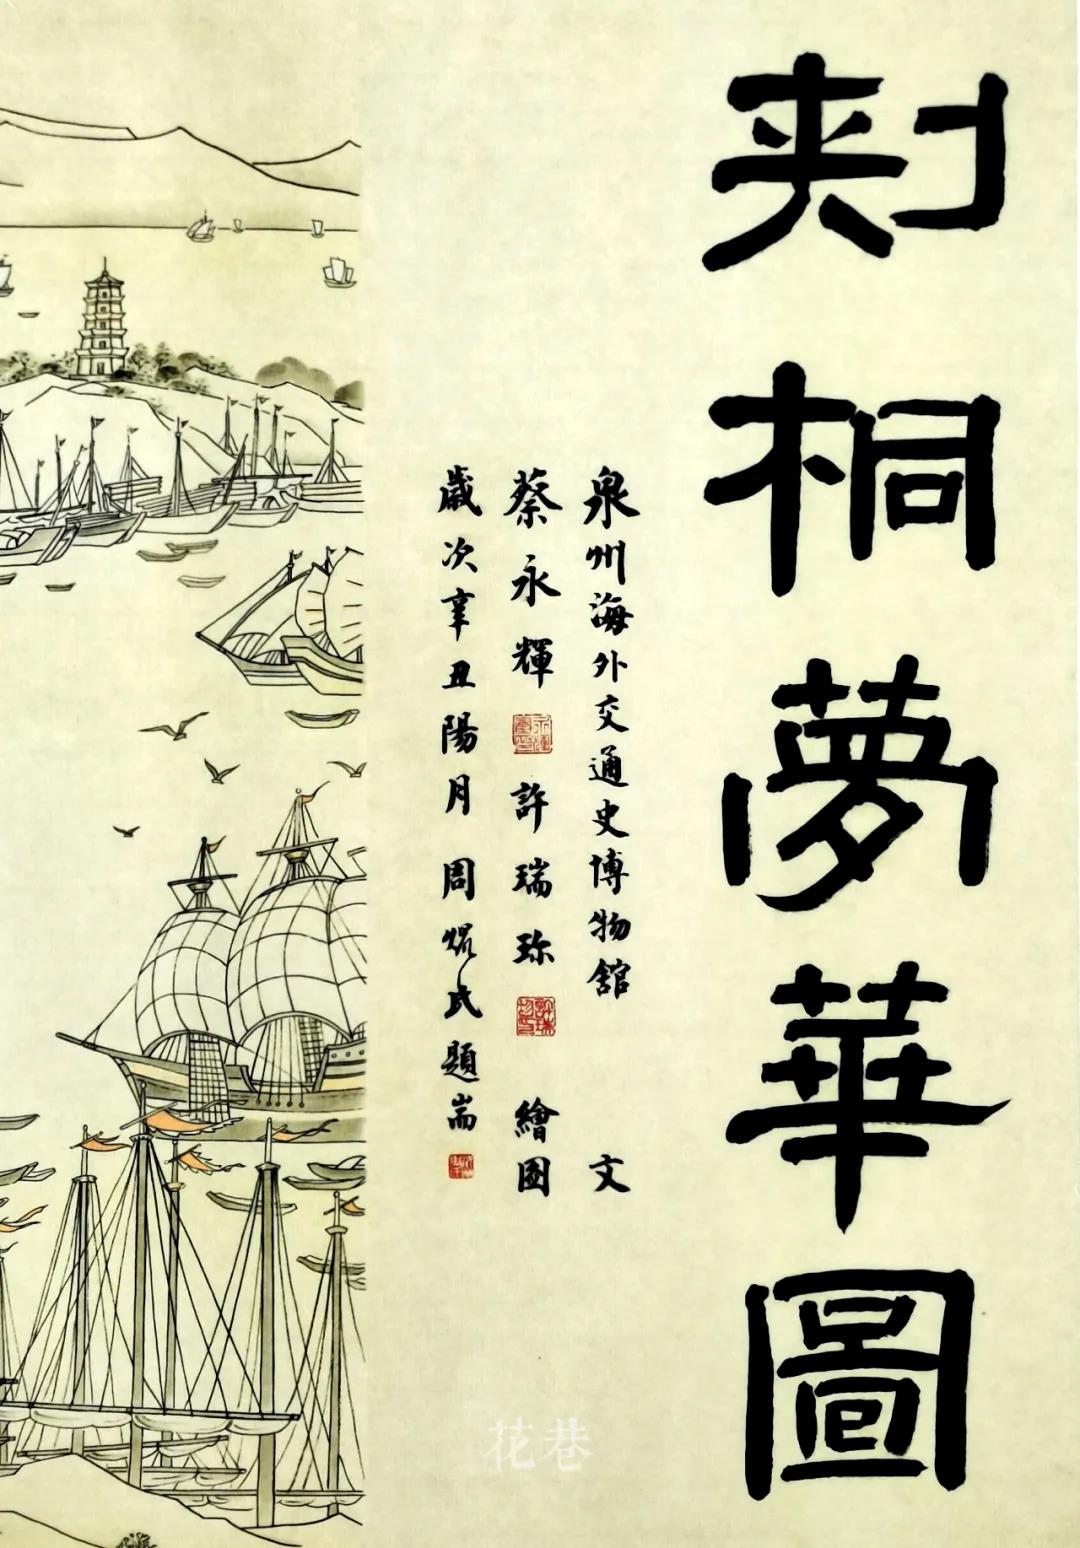 刺桐夢華圖
泉州海外交通史博物館 文
蔡永輝 許瑞珍 繪圖
歲次辛丑陽月 周焜民題耑
花巷